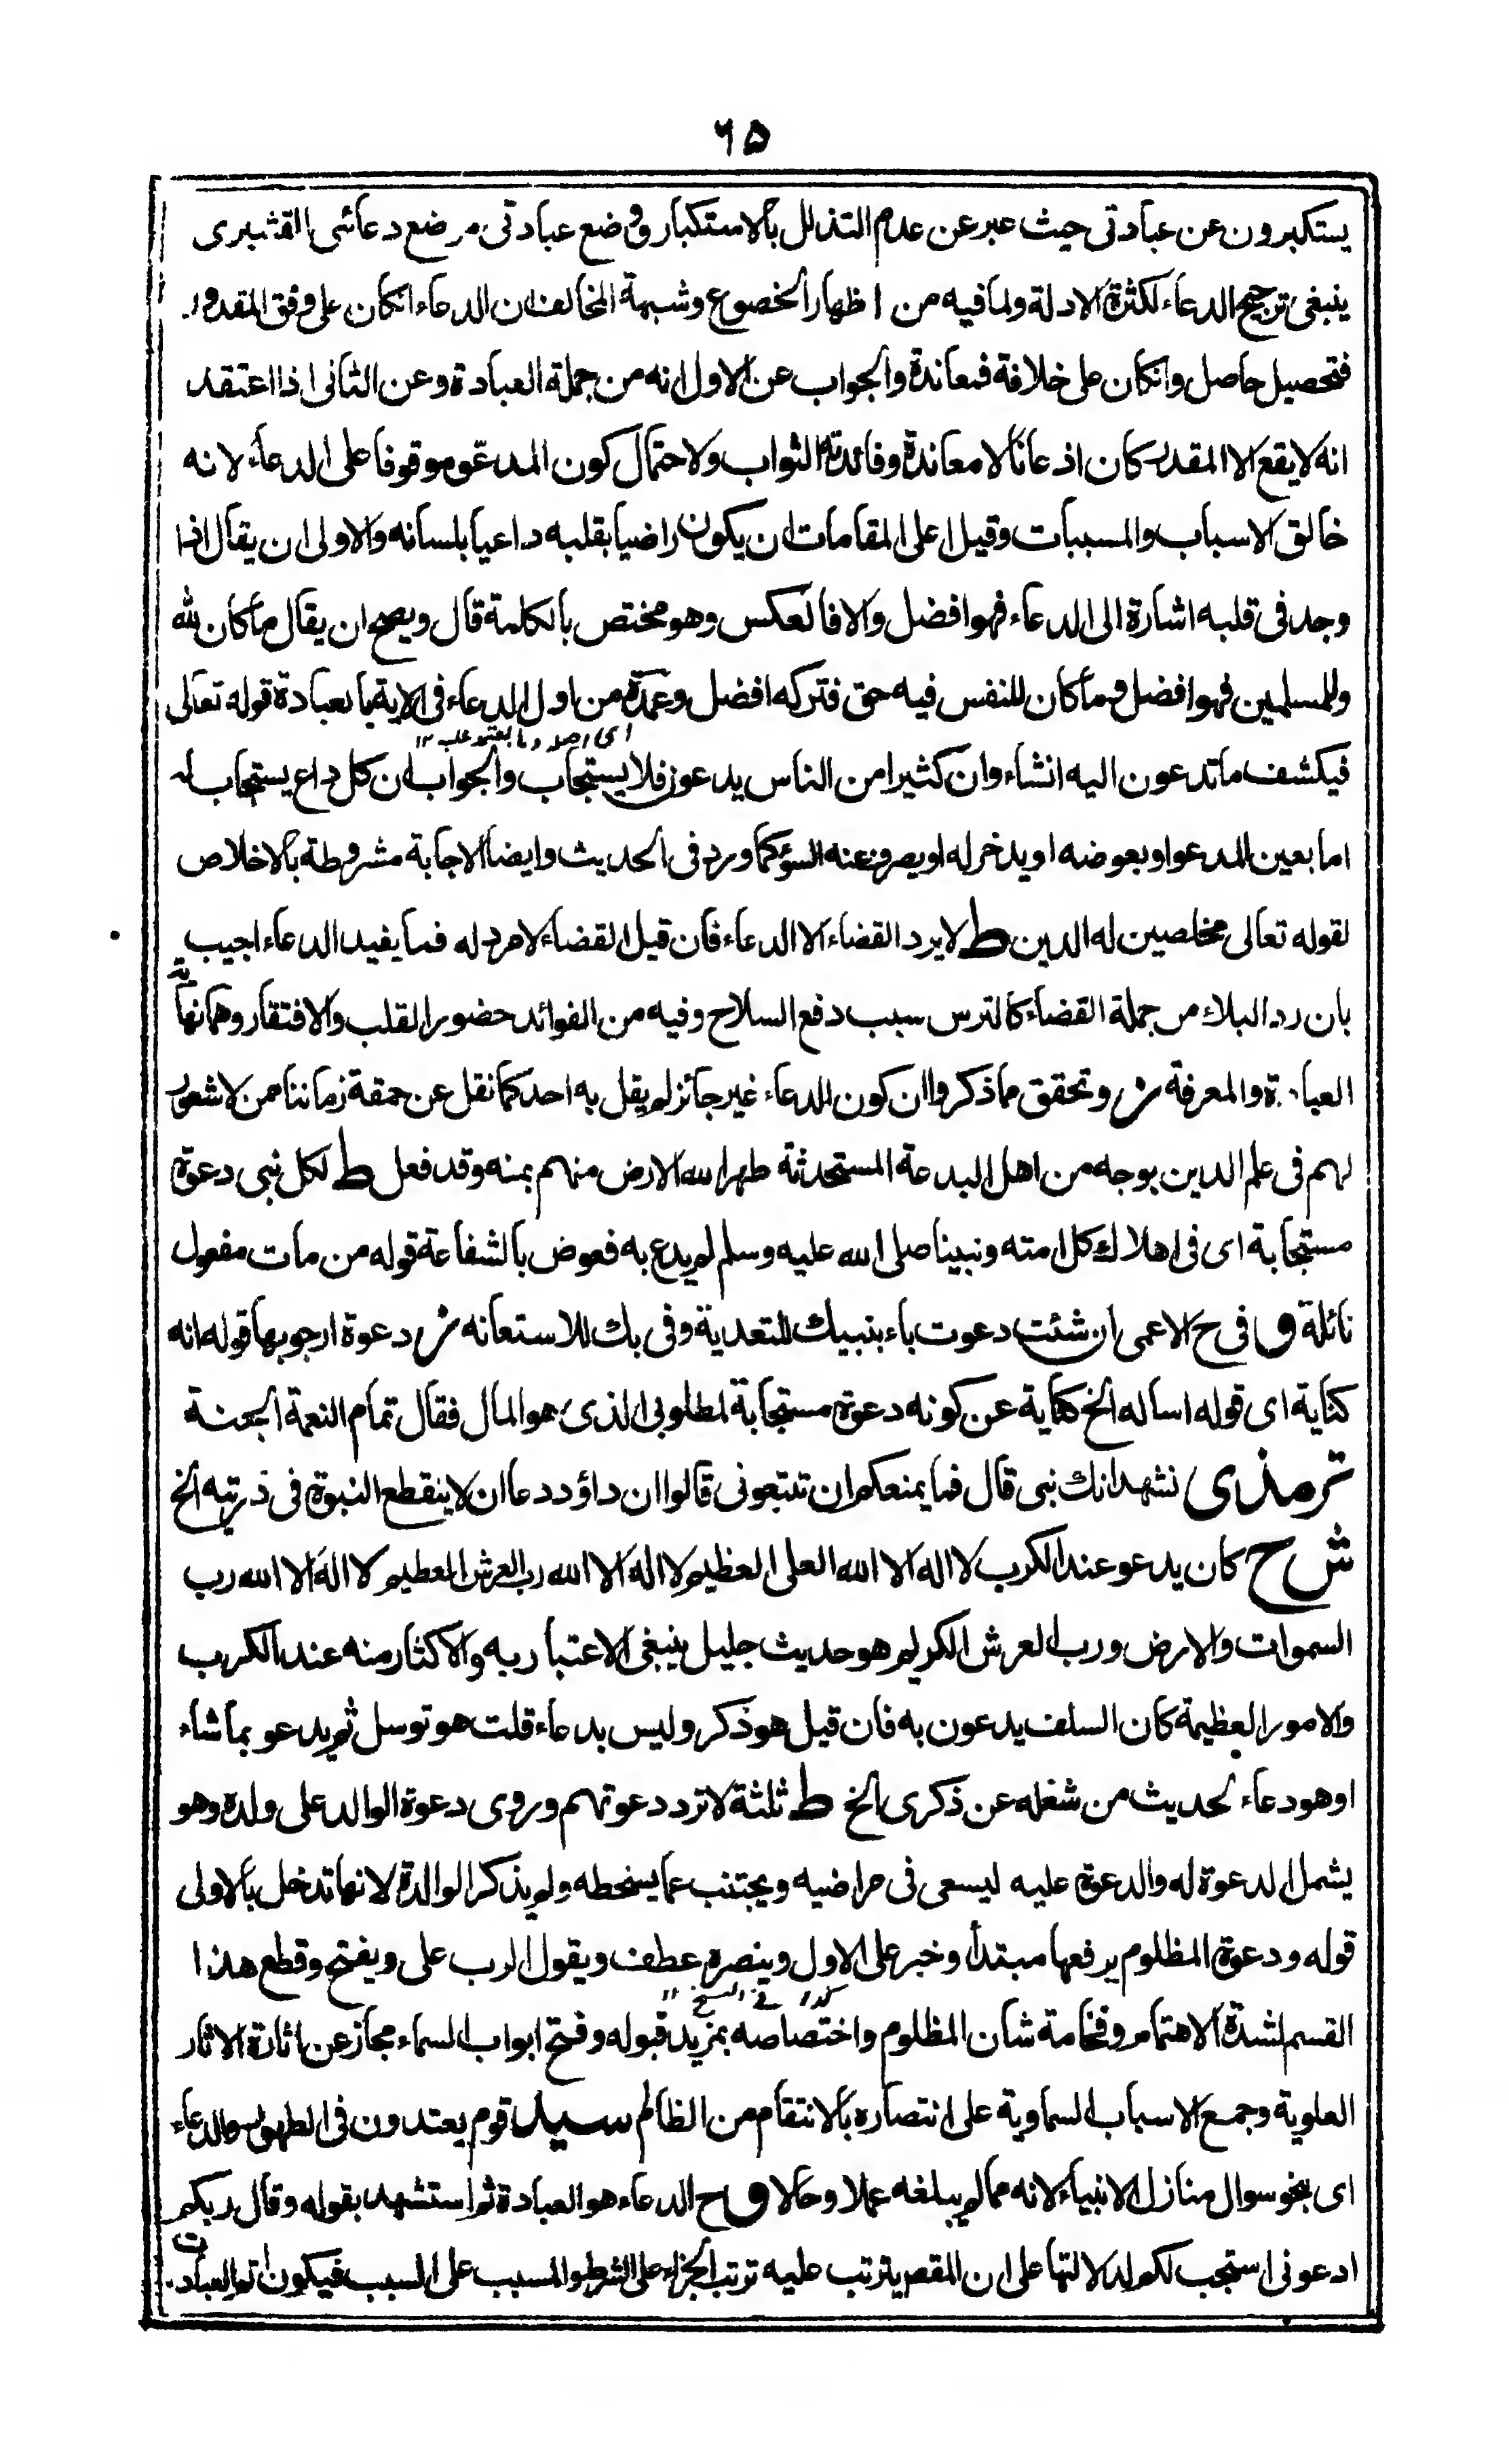 ٦٥
يستكبرون عن عبادتى حيث عبر عن عدم التذلل بالاستكبار وضع عبادتى موضع دعائى القشيرى
ينبغى ترجيح الدعاء لكثرة الادلة ولما فيه من اظهار الخضوع وشبهة المخالف ان الدعاء انكان على وفق المقدور
فتحصيل حاصل وانكان على خلافة فمعاندة والجواب عن الاول انه من جملة العبادة وعن الثانى اذا اعتقد
انه لا يقع الا المقدر كان اذعانا لا معاندة وفائدته الثواب ولاحتمال كون المدعو موقوفا على الدعاء لانه
خالق الاسباب والمسببات وقيل اعلى المقامات ان يكون راضيا بقلبه داعيا بلسانه والاولى ان يقال اذا
وجد فى قلبه اشارة الى الدعاء فهو افضل والا فالعكس وهو مختص بالكلمة قال ويصح ان يقال ما كان لله
وللمسلمين فهو افضل وما كان للنفس فيه حق فتركه افضل وعمدة من اول الدعاء فى الاية بالعبادة قوله تعالى
اى اصل وما يعتمد عليه ١٢
فيكشف ما تدعون اليه انشاء وان كثيرا من الناس يدعون فلا يستجاب والجواب ان كل داع يستجاب له
اما بعين المدعو او بعوضه او يدخر له او يصرف عنه السوٴ كما ورد فى الحديث وايضا الاجابة مشروطة بالاخلاص
لقوله تعالى مخلصين له الدين ط لا يرد القضاء الا الدعاء فان قيل القضاء لا مرد له فما يفيد الدعاء اجيب
بان رد البلاء من جملة القضاء كالترس سبب دفع السلاح وفيه من الفوائد حضور القلب والافتقار وهما نهاية
العبادة والمعرفة ش وتحقق ما ذكروا ان كون الدعاء غير جائز لم يقل به احد كما نقل عن حمقة زماننا ممن لا شعور
لهم فى علم الدين بوجه من اهل البدعة المستحدثة طهر الله الارض منهم بمنه وقد فعل ط لكل نبى دعوة
مستجابة اى فى اهلاك كل امته ونبينا صلى الله عليه وسلم لم يدع به فعوض بالشفاعة قوله من مات مفعول
نائلة ق فى ح الاعمى ان شئت دعوت باء بنبيك للتعدية وفى بك للاستعانه ش دعوة ارجو بها قوله انه
كناية اى قوله اساله الخ كناية عن كونه دعوة مستجابة لمطلوبى الذى هو المال فقال تمام النعمة الجنة
ترمذى نشهد انك نبى قال فما يمنعكم ان تتبعونى قالوا ان داؤد دعا ان لا ينقطع النبوة فى ذريته الخ
ش ح كان يدعو عند الكرب لا اله الا الله العلى العظيم لا اله الا الله رب العرش العظيم لا اله الا الله رب
السموات والارض ورب العرش الكريم هو حديث جليل ينبغى الاعتبار به والاكثار منه عند الكرب
والامور العظيمة كان السلف يدعون به فان قيل هو ذكر وليس بدعاء قلت هو توسل ثم يدعو بما شاء
او هو دعاء لحديث من شغله عن ذكرى الخ ط ثلثة لا ترد دعوتهم وروى دعوة الوالد على ولده وهو
يشمل الدعوة له والدعوة عليه ليسعى فى مراضيه ويجتنب عما يسخطه ولم يذكر الوالدة لانها تدخل بالاولى
قوله ودعوة المظلوم يرفعها مبتدأ وخبر على الاول وينصره عطف ويقول الرب على ويفتح وقطع هذا
كذا فى النسخ ١١
القسم لشدة الاهتمام وفخامة شان المظلوم واختصاصه بمزيد قبوله وفتح ابواب السماء مجاز عن اثارة الاثار
العلوية وجمع الاسباب السماوية على انتصاره بالانتقام من الظالم سيد قوم يعتدون فى الطهور والدعاء
اى بنحو سوال منازل الانبياء لانه مما لم يبلغه عملا وحالا ق ح الدعاء هو العبادة ثم استشهد بقوله وقال ربكم
ادعونى استجب لكم لدلالتها على ان المقصر يترتب عليه ترتب الجزاء على الشرط والمسبب على السبب فيكون اتم العبادات